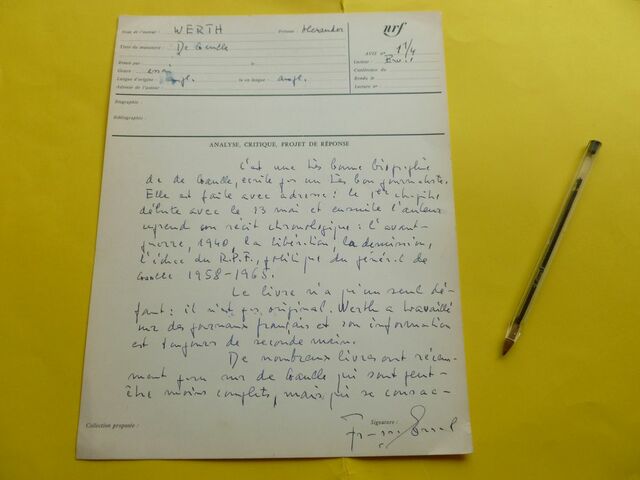 nrf
Nom de l'auteur : WERTH Prénom : Alexander
Titre du manuscrit : De Gaulle
AVIS n° 1 1/4
Envoi par : le
Lecteur :
Genre : essai
Conférence du
Langue d'origine : angl. lu en langue : angl.
Rendu le
Adresse de l'auteur :
Lecture n°
Biographie :
Bibliographie :
ANALYSE, CRITIQUE, PROJET DE RÉPONSE
C'est une très bonne biographie
de de Gaulle, écrite par un très bon journaliste.
Elle est faite avec adresse : le 1er chapitre
débute avec le 13 mai et ensuite l'auteur
reprend son récit chronologique : l'avant-
guerre, 1940, la libération, la démission,
l'échec du R.P.F., politique du général de
Gaulle 1958-1965.
Le livre n'a qu'un seul dé-
faut : il n'est pas original. Werth a travaillé
sur des journaux français et son information
est toujours de seconde main.
De nombreux livres ont récem-
ment paru sur de Gaulle qui sont peut-
être moins complets, mais qui se consac-
Collection proposée :
Signature :